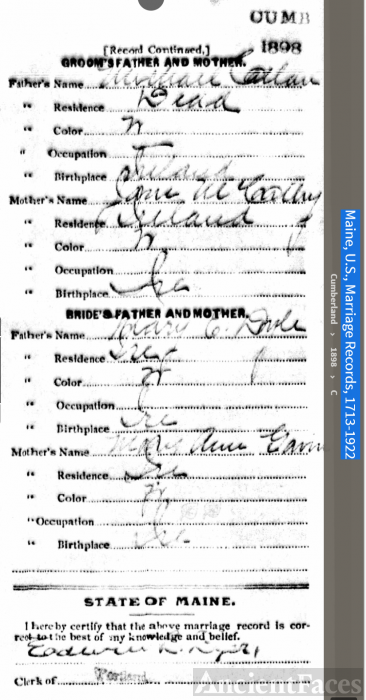 CUMB
1898
[Record Continued.]
GROOM'S FATHER AND MOTHER.
Father's Name
" Residence Dead
" Color W
" Occupation
" Birthplace Ireland
Mother's Name Jane McCarthy
" Residence Ireland
" Color W
" Occupation
" Birthplace Ire
BRIDE'S FATHER AND MOTHER.
Father's Name
" Residence Ire
" Color W
" Occupation
" Birthplace Ire
Mother's Name Mary Ann
" Residence Ire
" Color W
" Occupation
" Birthplace Ire
STATE OF MAINE.
I hereby certify that the above marriage record is cor-
rect to the best of my knowledge and belief.
Clerk of Portland
Maine, U.S., Marriage Records, 1713-1922
Cumberland > 1898 > C
AncientFaces